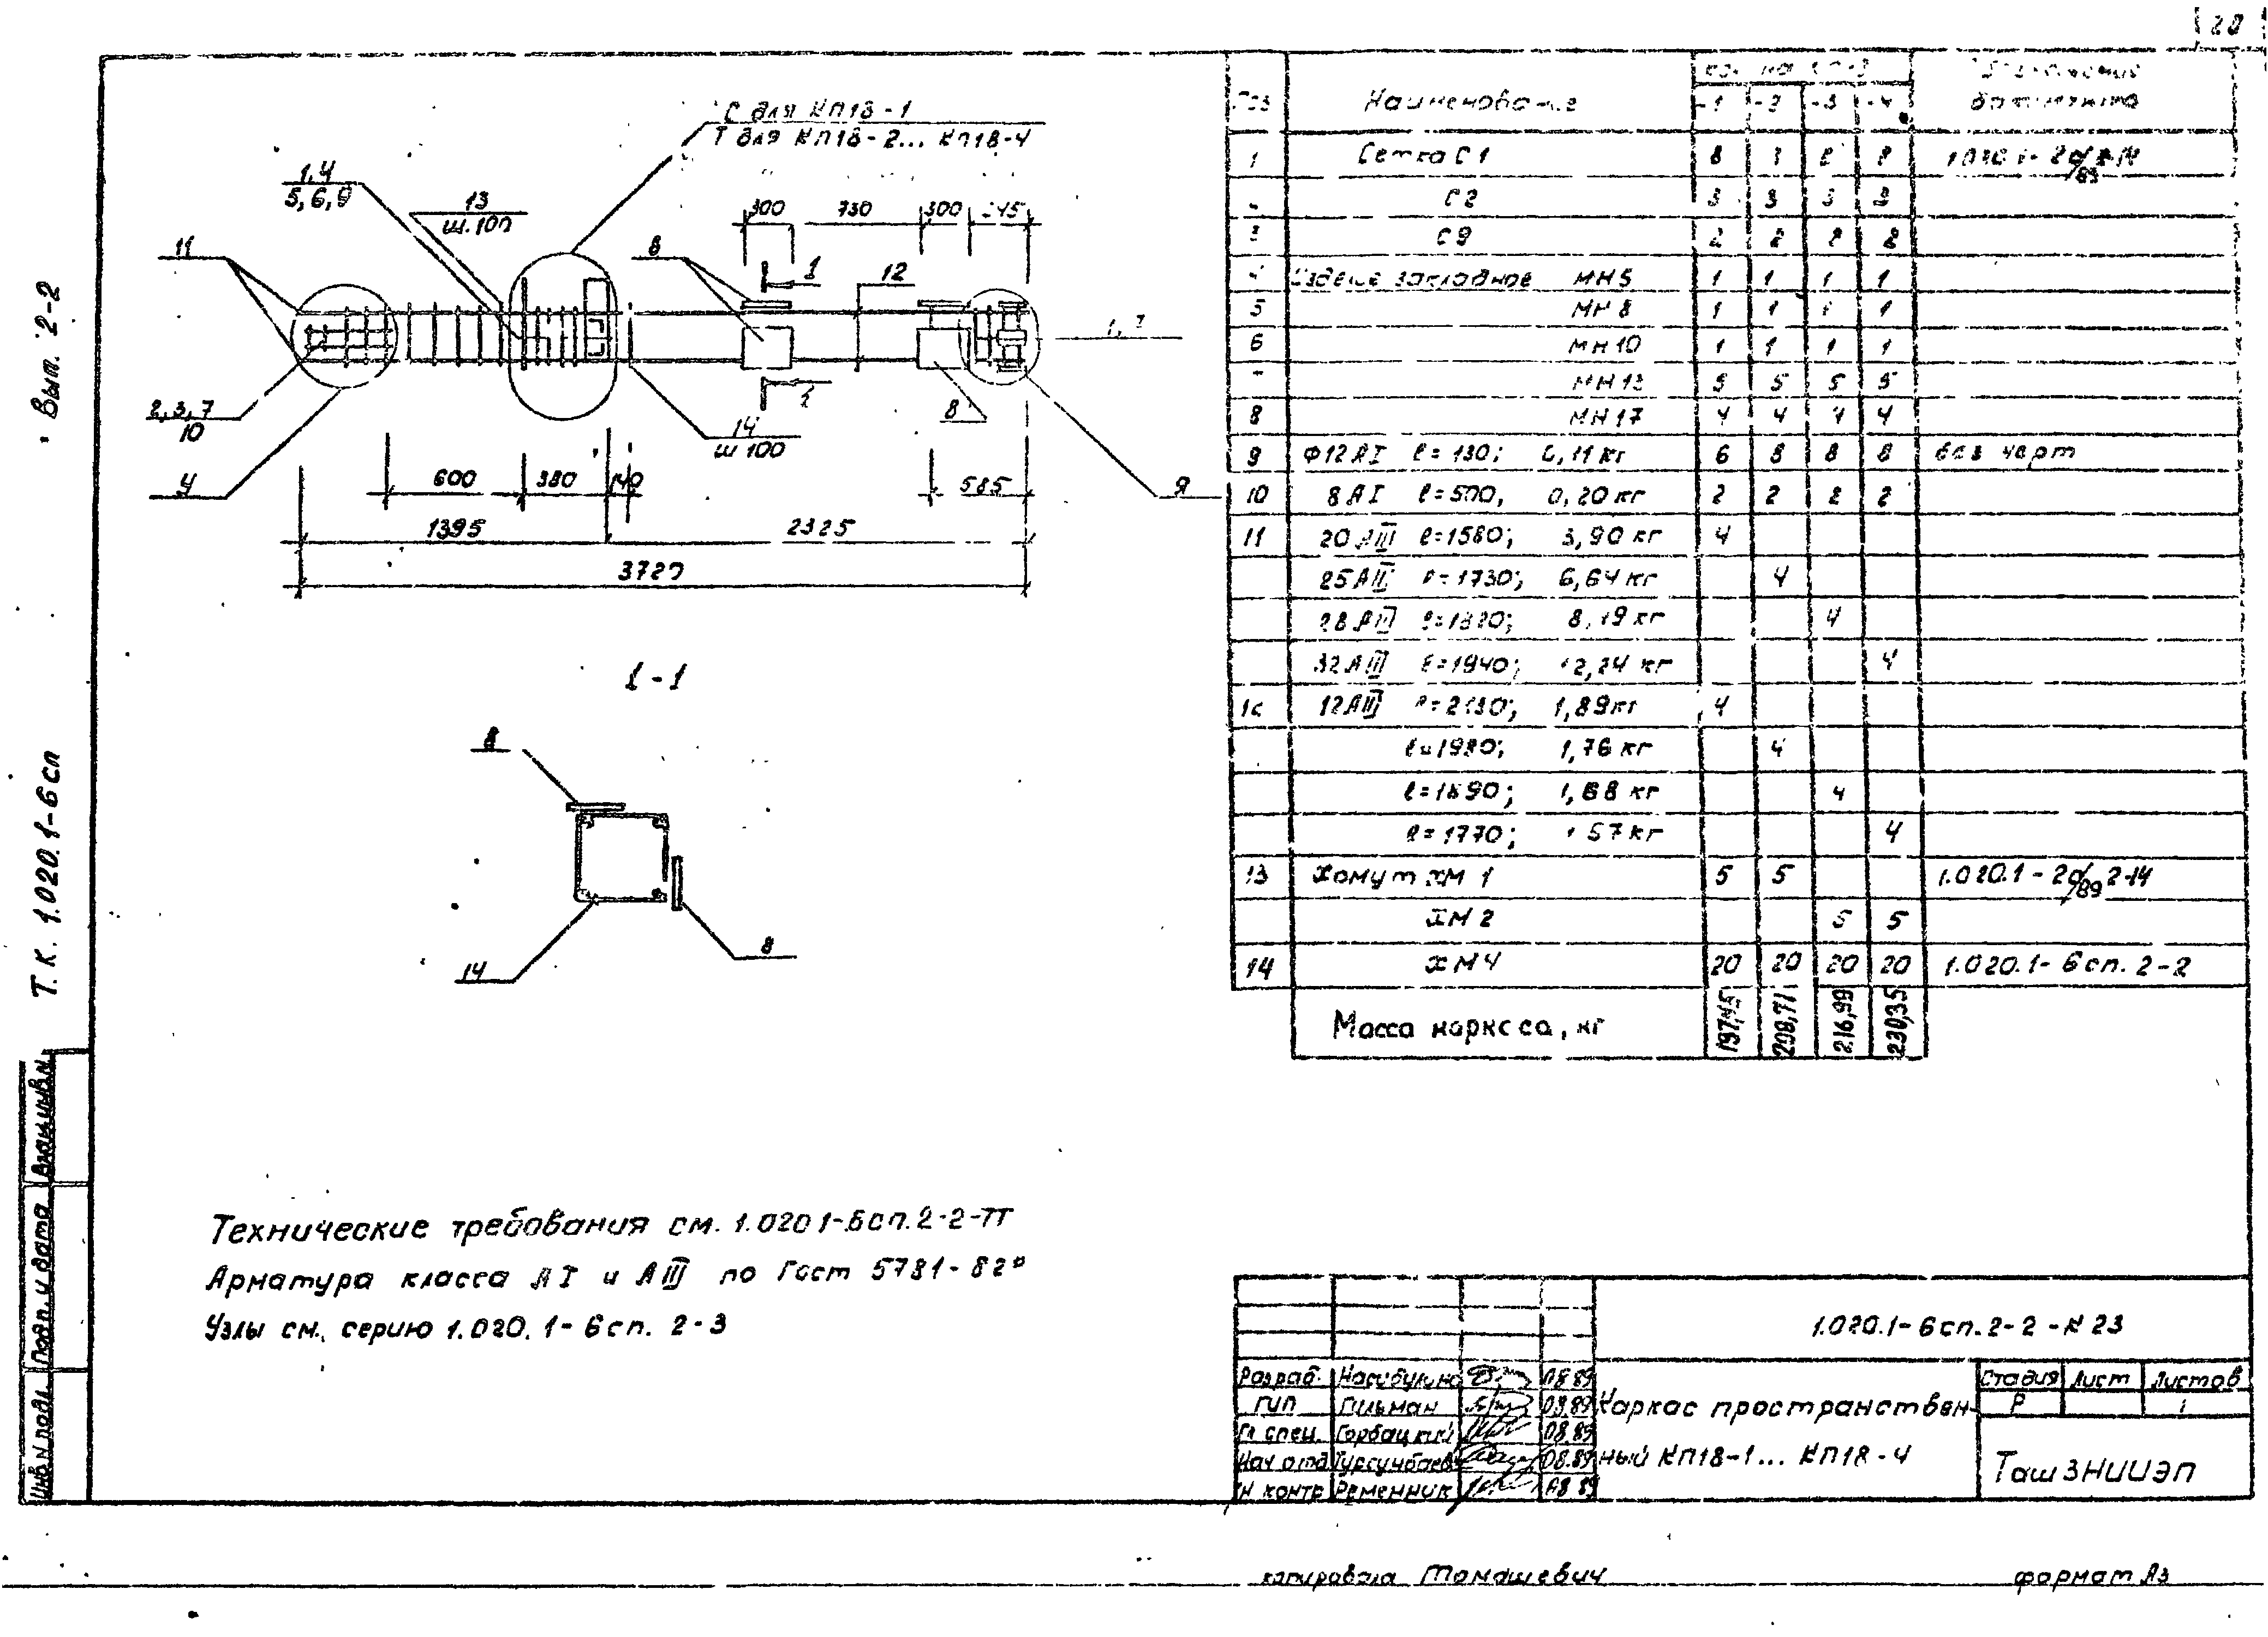 20
С для КП18-1
Т для КП18-2... КП18-4
1,4
5,6,9
13
ш.100
300 730 300 245
11
8
1
12
1,
2,3,7
10
14
ш 100
8
4
600 380 140 585
Я
1395 2325
3720
1-1
8
14
8
Вып. 2-2
Т.К. 1.020.1-6сп
Взам.инв.N
Подп. и дата
Инв.N подл.
Поз Наименование -1 -2 -3 -4
1 Сетка С1 8 1.020.1-
С2 3 3 3 3
3 С9 2 2 2 2
4 Изделие закладное МН5 1 1 1 1
5 МН8 1 1 1 1
6 МН10 1 1 1 1
МН13 5 5 5 5
8 МН17 4 4 4 4
9 Ф12АI ℓ=130; 0,11кг 6 8 8 8 без черт
10 8АI ℓ=500, 0,20кг 2 2 2 2
11 20АIII ℓ=1580; 3,90 кг 4
25АIII ℓ=1730; 6,64 кг 4
28АIII ℓ=1820; 8,19 кг 4
32АIII ℓ=1940; 12,24 кг 4
12 12АIII ℓ=2130; 1,89кг 4
ℓ=1980; 1,76 кг 4
ℓ=1890; 1,68 кг 4
ℓ=1770; 1,57кг 4
13 Хомут ХМ1 5 5 1.020.1-2с/89 2-14
ХМ2 5 5
14 ХМ4 20 20 20 20 1.020.1-6сп.2-2
Масса каркаса, кг 197,45 208,71 216,99 230,35
Технические требования см. 1.020 1-6сп.2-2-ТТ
Арматура класса АI и АIII по Гост 5781-82*
Узлы см. серию 1.020.1-6сп. 2-3
1.020.1-6сп.2-2-К23
Разраб. 08.89
ГИП Гильман 08.89
Гл спец. Горбацкий 08.89
Нач отд Турсунбаев 08.89
Н контр Ременник 08 89
Каркас пространствен-
ный КП18-1... КП18-4
Стадия Лист Листов
Р 1
ТашЗНИИЭП
копировала Томашевич формат А3